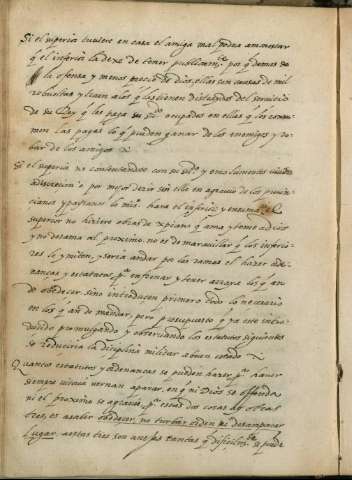 Si el superior tuviere en casa el amiga mal podra amonestar
q̃ el inferior la dexe de tener publicamẽ.te por q̃ demas de
la ofensa y menos precio de dios, ellas son causas de mil
rebueltas y traen a los q̃ las tienen distraidos del servicio
de su Rey q̃ les paga su sueldo ocupados en ellas q̃ les consu
men las pagas lo q̃ pueden ganar de los enemigos y ro-
bar de los amigos
Si el superior no contentandose con su sueldo y emolumentos
adiscretion o por mejor dezir sin ella en agravio de los provin
ciales y paysanos lo mismo hara el inferior, y en suma si el
superior no hiziere obras de xpiano q̃ ama y teme a dios
y no desama al proximo, no es de maravillar q̃ los inferio-
res lo ymiten, y seria andar por las ramas el hazer orde-
nanças y estatutos, p.a enfrenar y tener a raya los q̃ an
de obedecer, sino introduzen primero todo lo necesario
en los q̃ an de mandar, pero presupuesto q̃ ya este intro
duzido promulgando y observando los estatutos siguientes
se reduciria la diciplina militar a buen estado
Quantos estatutos y ordenanças se pueden hazer p.a haver
siempre vitoria vernan a parar, en q̃ ni Dios se ofenda
ni el proximo se agravie, p.a estas dos cosas ay obras
tres, es a saber obedecer, no turbar orden ni desamparar
Lugar, a estas tres son anejas tantas q̃ dificilm.te se puede